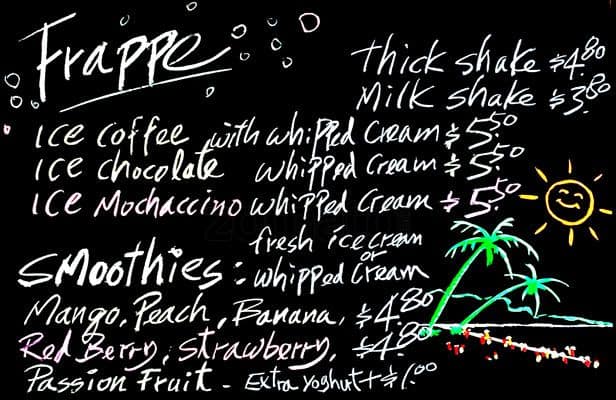 Frappe
Thick shake $4.80
Milk shake $3.80
Ice coffee with whipped cream $5.50
Ice chocolate whipped cream $5.50
Ice Mochaccino whipped cream $5.50
fresh ice cream
or
Smoothies: whipped cream
Mango, Peach, Banana, $4.80
Red Berry, Strawberry, $4.80
Passion Fruit - Extra Yoghurt + $1.00